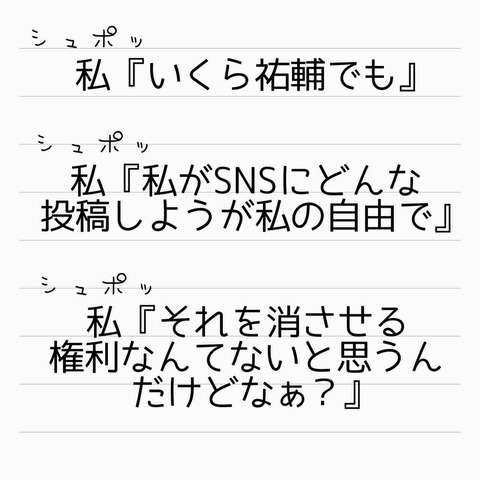 シュポッ
私『いくら祐輔でも』
シュポッ
私『私がSNSにどんな
投稿しようが私の自由で』
シュポッ
私『それを消させる
権利なんてないと思うん
だけどなぁ？』